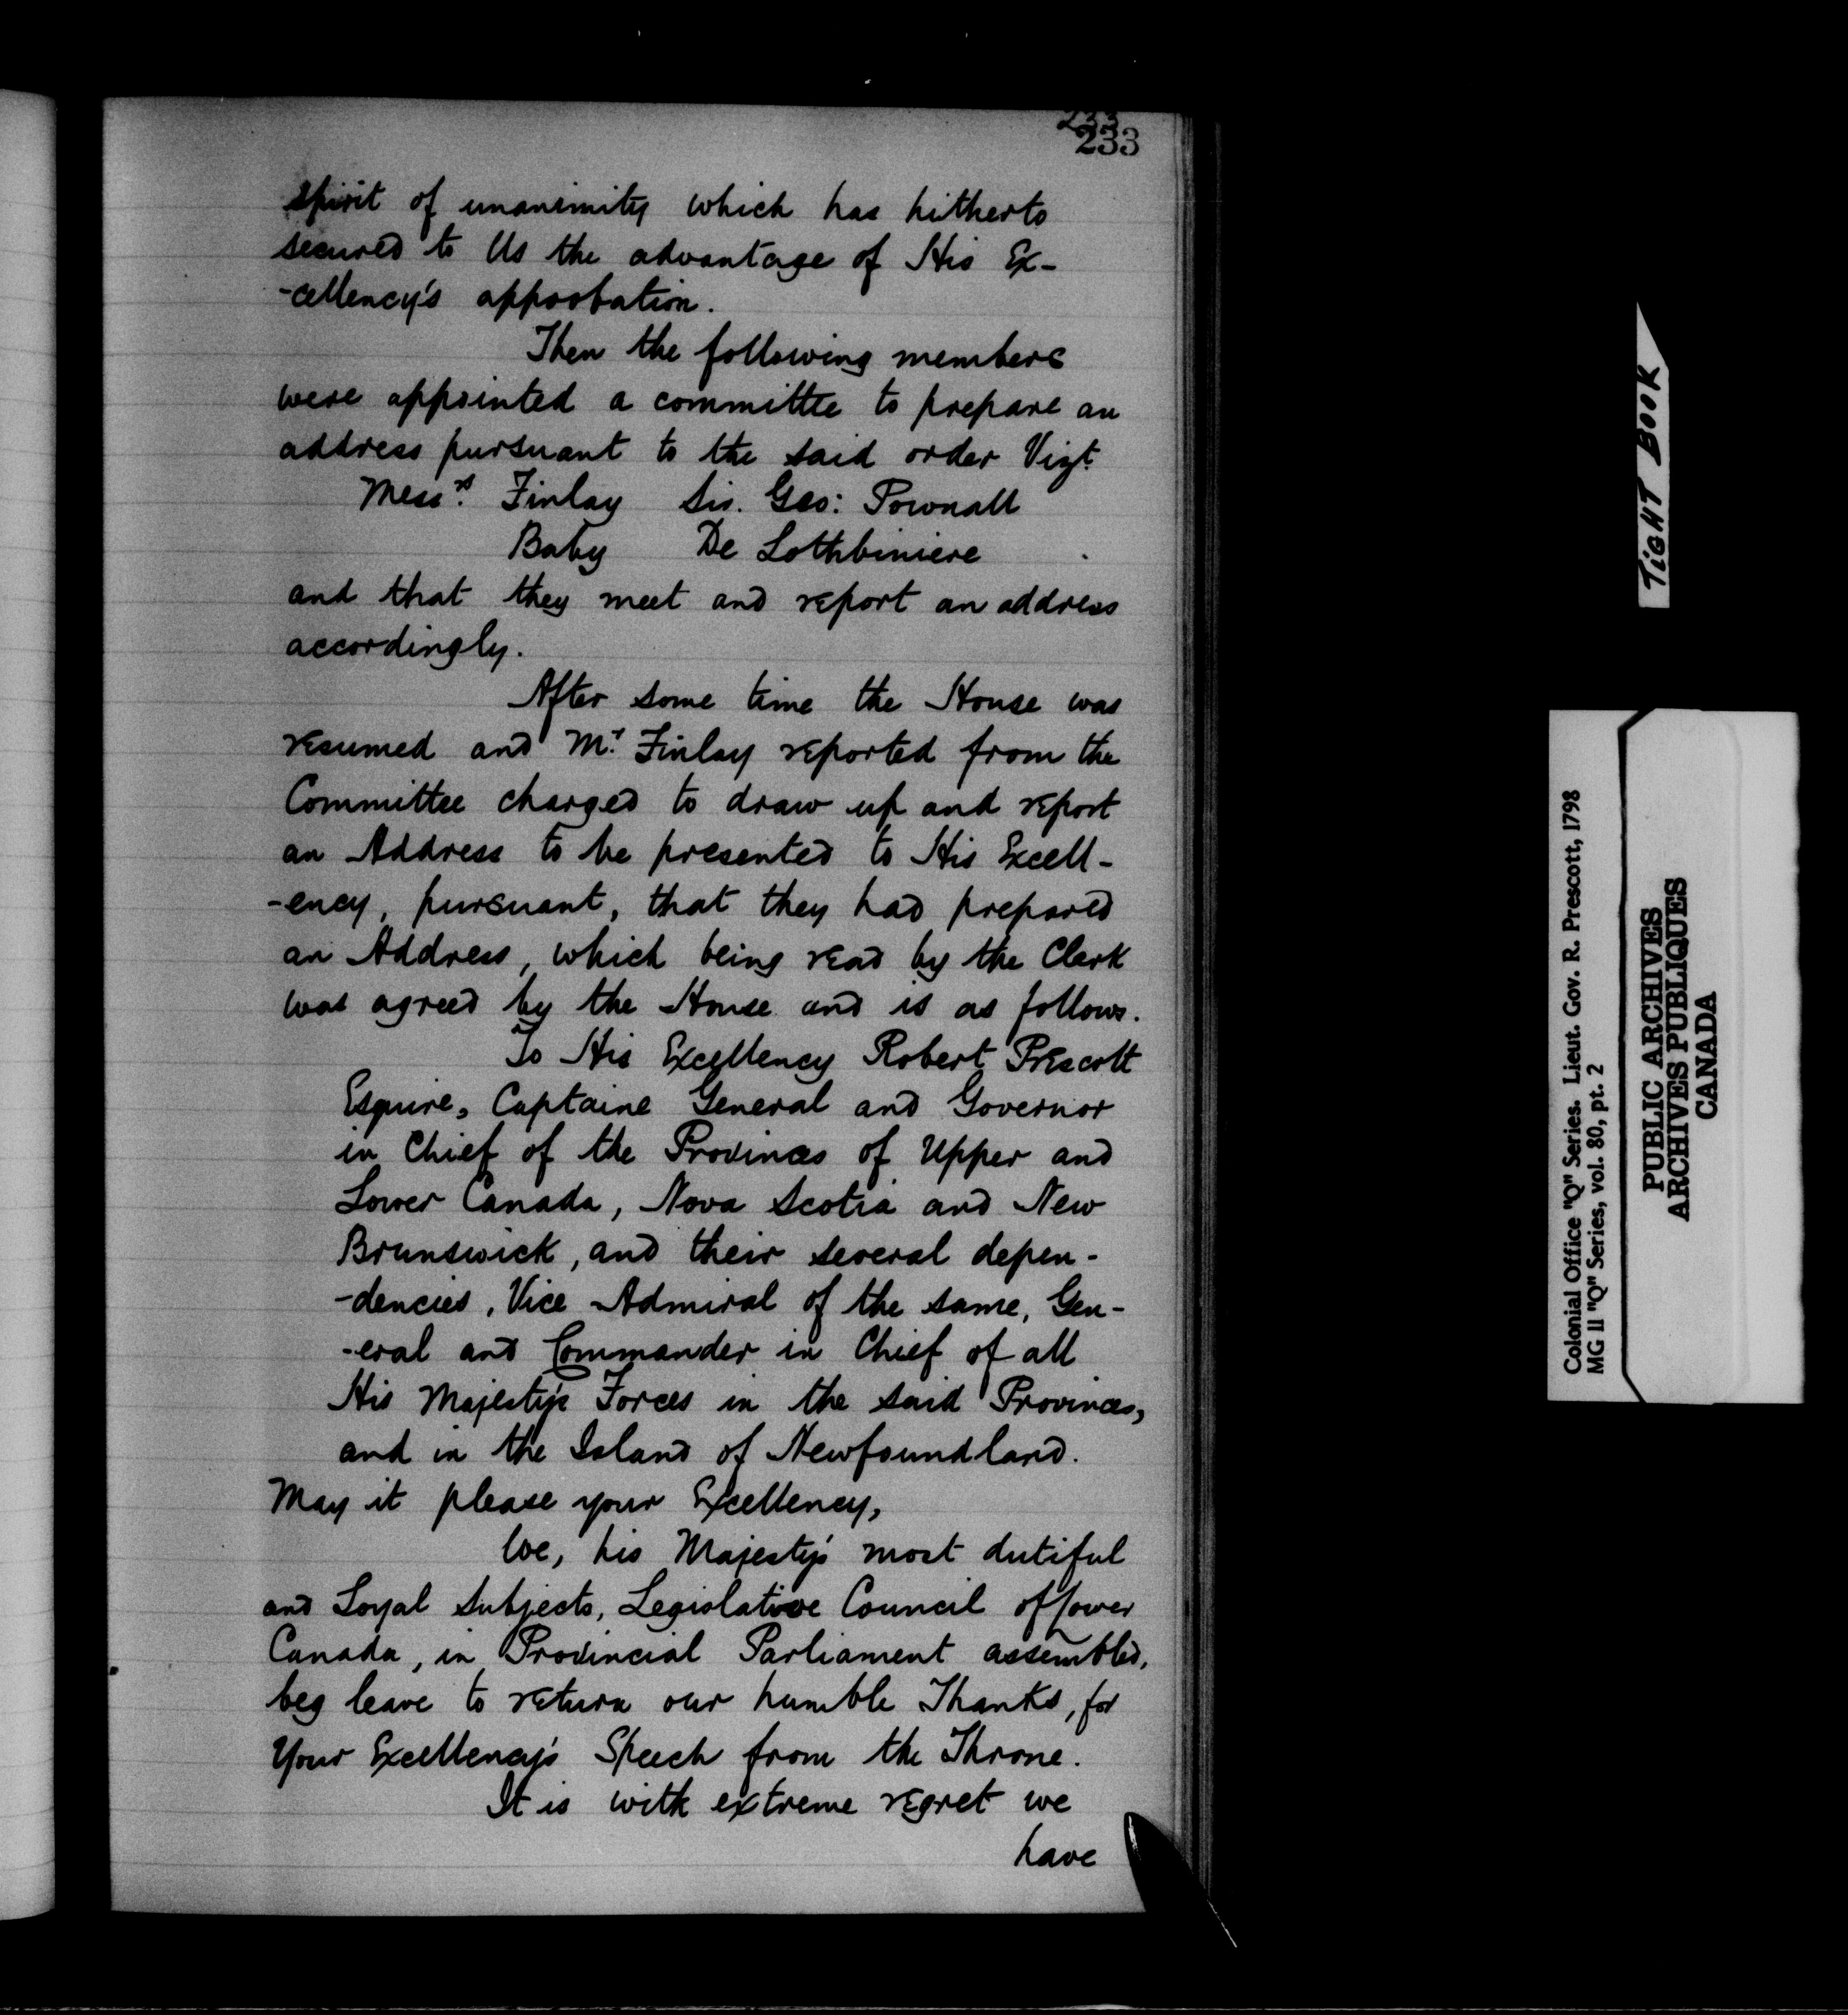 233
233
spirit of unanimity which has hitherto
secured to Us the advantage of His Ex-
-cellency's approbation.
Then the following members
were appointed a committee to prepare an
address pursuant to the said order Vizt.
Messrs. Finlay Sir. Geo: Pownall
Baby De Lothbiniere
and that they meet and report an address
accordingly.
After some time the House was
resumed and Mr. Finlay reported from the
Committee charged to draw up and report
an Address to be presented to His Excell-
-ency, pursuant, that they had prepared
an Address, which being read by the Clerk
was agreed by the House and is as follows.
To His Excellency Robert Prescott
Esquire, Captaine General and Governor
in Chief of the Provinces of Upper and
Lower Canada, Nova Scotia and New
Brunswick, and their several depen-
-dencies, Vice Admiral of the same, Gen-
-eral and Commander in Chief of all
His Majesty's Forces in the said Provinces,
and in the Island of Newfoundland.
May it please your Excellency,
We, his Majesty's most dutiful
and Loyal Subjects, Legislative Council of Lower
Canada, in Provincial Parliament assembled,
beg leave to return our humble Thanks, for
Your Excellency's Speech from the Throne.
It is with extreme regret we
have
TIGHT BOOK
Colonial Office "Q" Series. Lieut. Gov. R. Prescott, 1798
MG 11 "Q" Series, vol. 80, pt. 2
PUBLIC ARCHIVES
ARCHIVES PUBLIQUES
CANADA